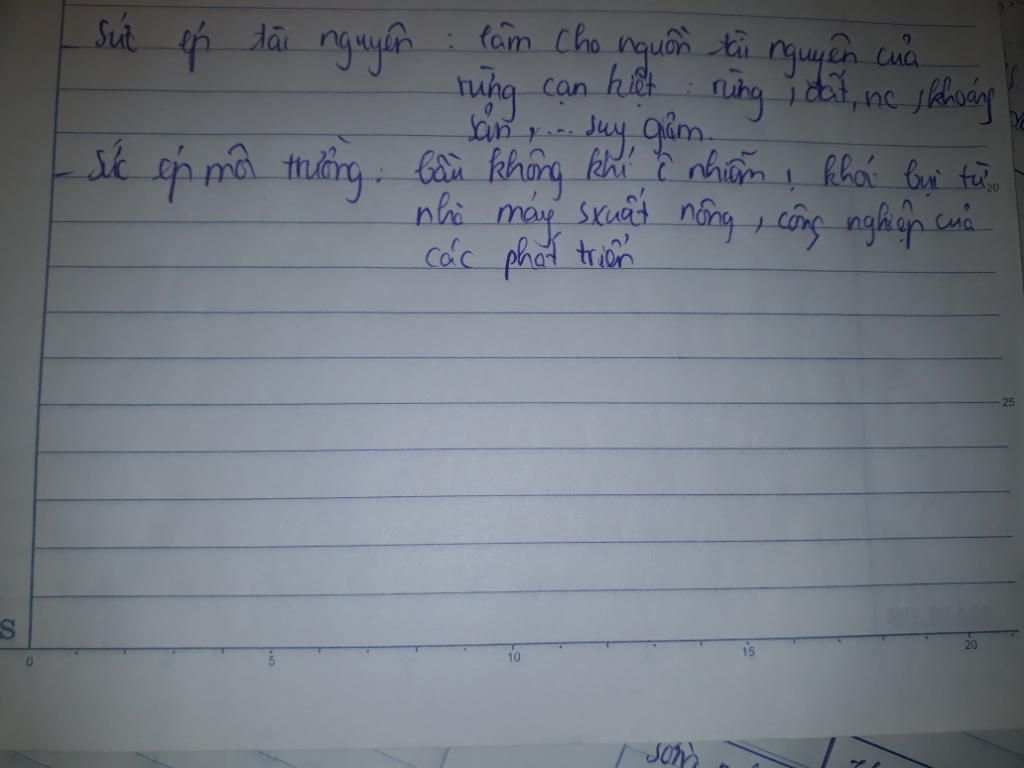 - Sức ép tài nguyên : làm cho nguồn tài nguyên của
rừng cạn kiệt : rừng, đất, nc, khoáng
sản, ... suy giảm.
- Sức ép môi trường : bầu không khí ô nhiễm, khói bụi từ
20
nhà máy sxuất nông, công nghiệp của
các phát triển
25
S
0 5 10 15 20